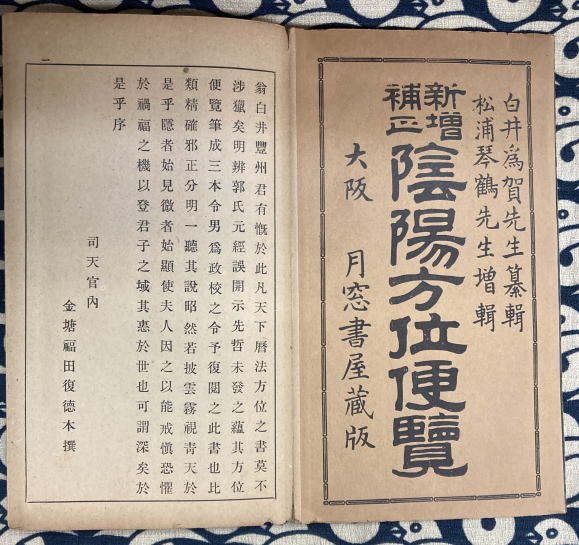 白井爲賀先生纂輯
松浦琴鶴先生增輯
新增補正
陰陽方位便覽
大阪　月窓書屋藏版
翁白井豐州君有慨於此凡天下曆法方位之書莫不
涉獵矣明辨郭氏元經誤開示先哲未發之蘊其方位
便覽筆成三本令男爲政校之令予復閱之此書也比
類精確邪正分明一聽其說昭然若披雲霧視靑天於
是乎隱者始見微者始顯使夫人因之以能戒愼恐懼
於禍福之機以登君子之域其惠於世也可謂深矣於
是乎序
司天官內
金塘福田復德本撰
一